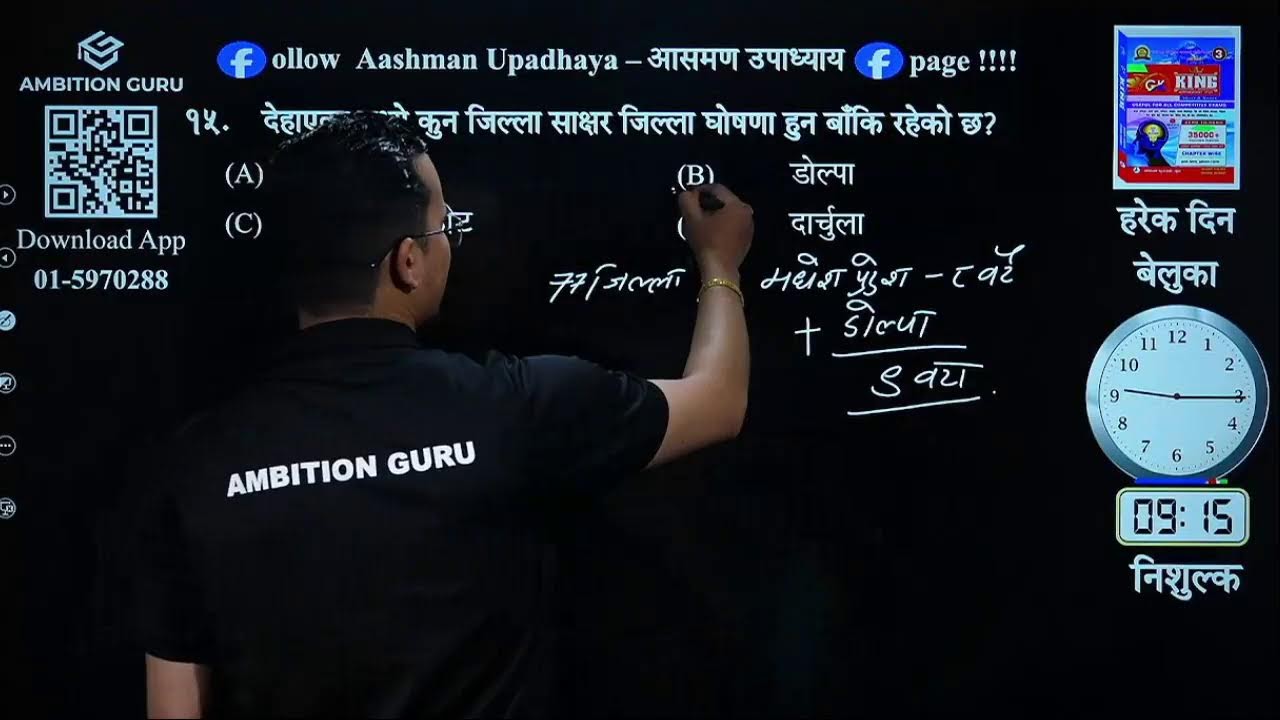 ollow Aashman Upadhaya – आसमण उपाध्याय page !!!!
AMBITION GURU
१५. कुन जिल्ला साक्षर जिल्ला घोषणा हुन बाँकि रहेको छ?
(A)
(B) डोल्पा
(C)
दार्चुला
Download App
01-5970288
77 जिल्ला
मधेश प्रदेश – ८ वटै
+ डोल्पा
९ वटा .
AMBITION GURU
3
GK KING
USEFUL FOR ALL COMPETITIVE EXAMS
35000+
CHAPTER WISE
हरेक दिन
बेलुका
12
1
2
3
4
5
6
7
8
9
10
11
09:15
निशुल्क